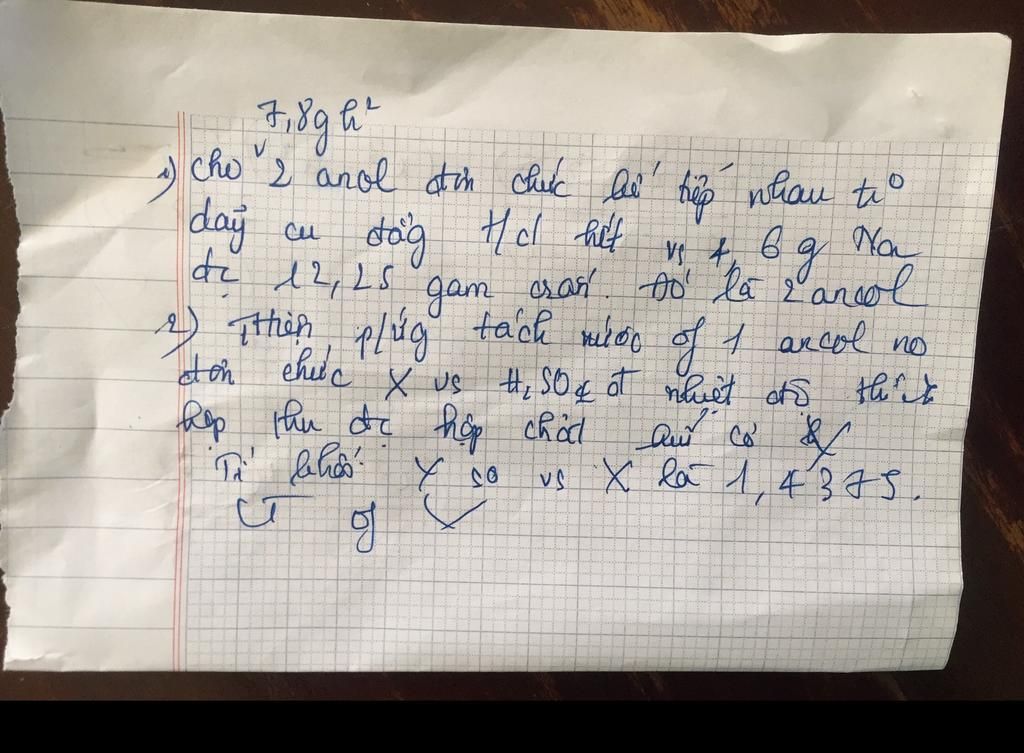 7,8g h²
1) cho 2 ancol đơn chức kế tiếp nhau tr
dãy đu đẳg t/d hết vs 4,6 g Na
đc 12,25 gam crắn. Đó là 2 ancol
2) Thiện p/ứg tách nước of 1 ancol no
đơn chức X vs H₂SO₄ ở nhiệt độ thích
hợp thu đc hợp chất hữu cơ Y
Tỉ khối Y so vs X là 1,4375.
CT of X